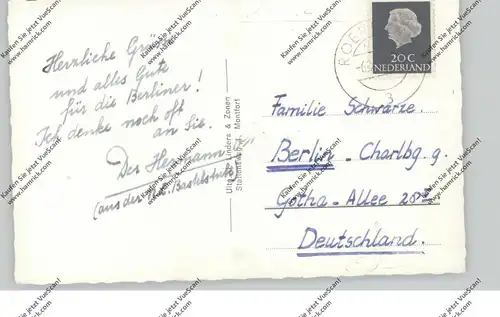 Herzliche Grüße
und alles Gute
für die Berliner!
Ich denke noch oft
an Sie.
Der Hermann
(aus der
Linders & Zonen
Montfort
ROER
20C
NEDERLAND
3
Familie Schwarze.
Berlin - Charlbg. 9.
Gotha - Allee
Deutschland.
Kaufen Sie jetzt VueScan
www.hamrick.com